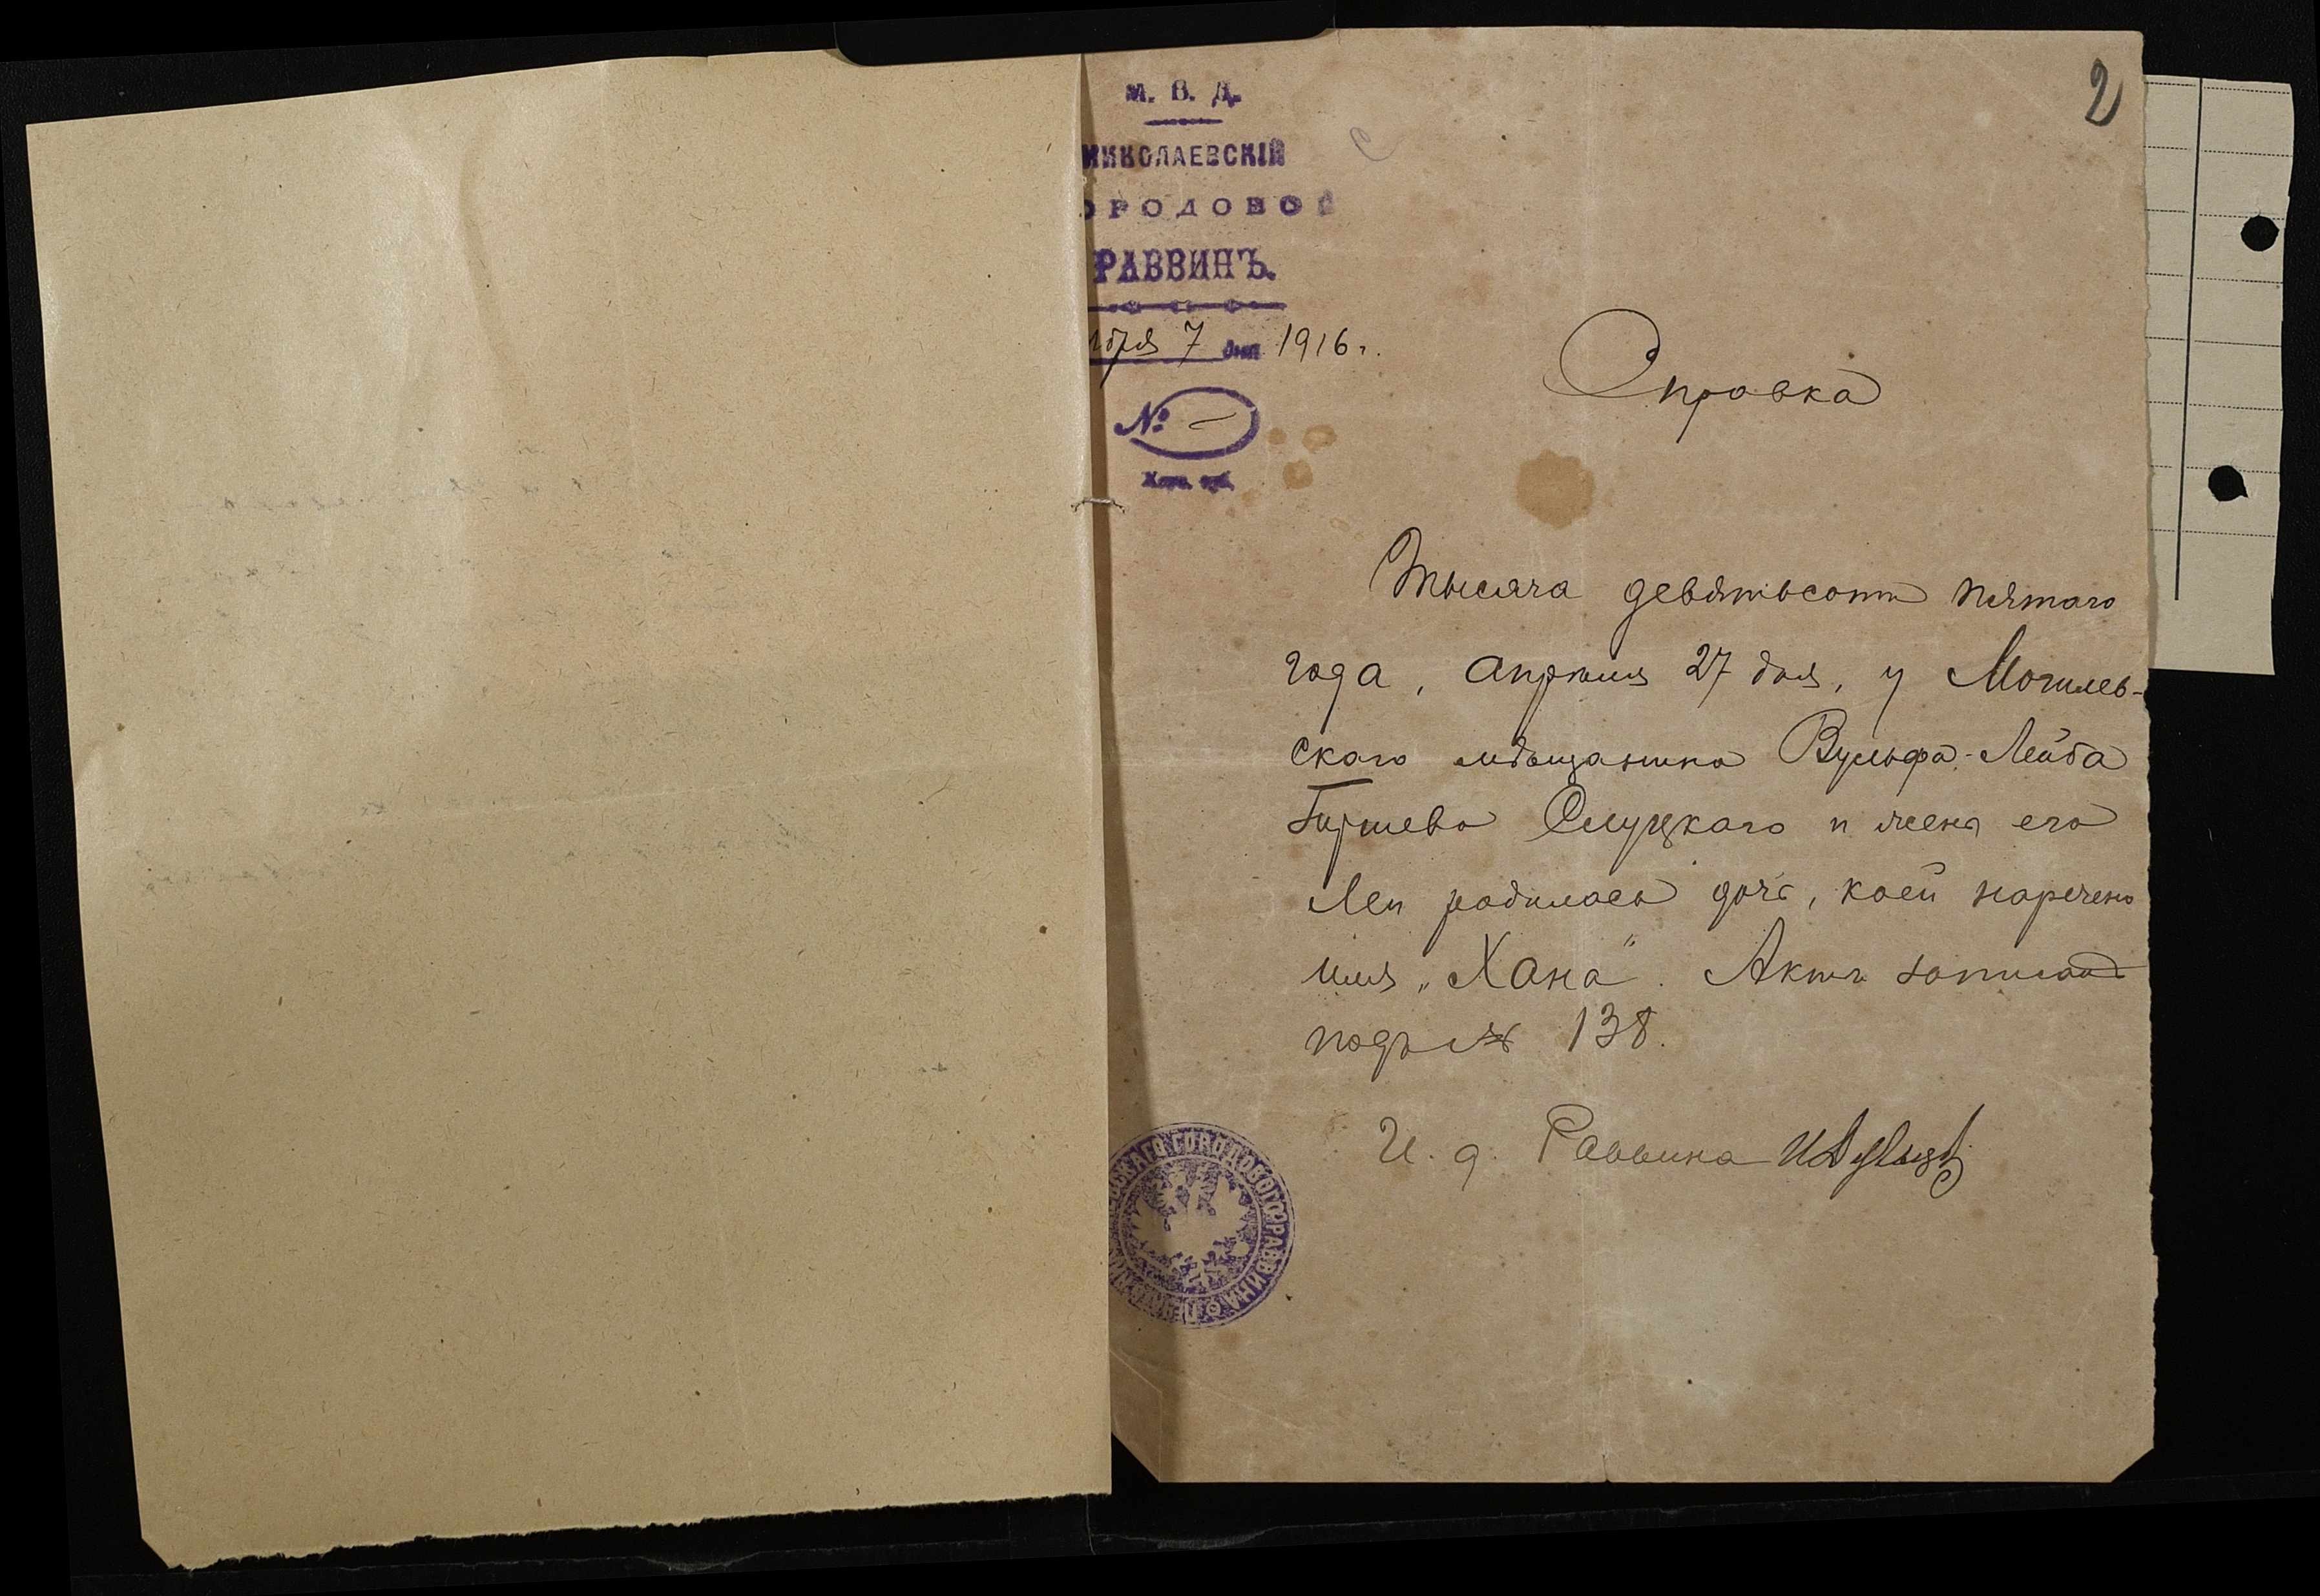 2
М. В. Д.
НИКОЛАЕВСКІЙ
ОРОДОВОЙ
РАВВИНЪ.
ября 7 дня 1916 г.
№ —
Херс. губ.
Справка
Тысяча девятьсотъ пятаго
года, апрѣля 27 дня, у Могилев-
скаго мѣщанина Вульфа-Лейба
Гиршева Слуцкаго и жены его
Леи родилась дочь, коей наречено
имя „Хана". Актъ записанъ
подъ № 138.
И. д. Раввина
СКАГО ГОРОДОВОГО РАВВИНА ПЕЧАТЬ